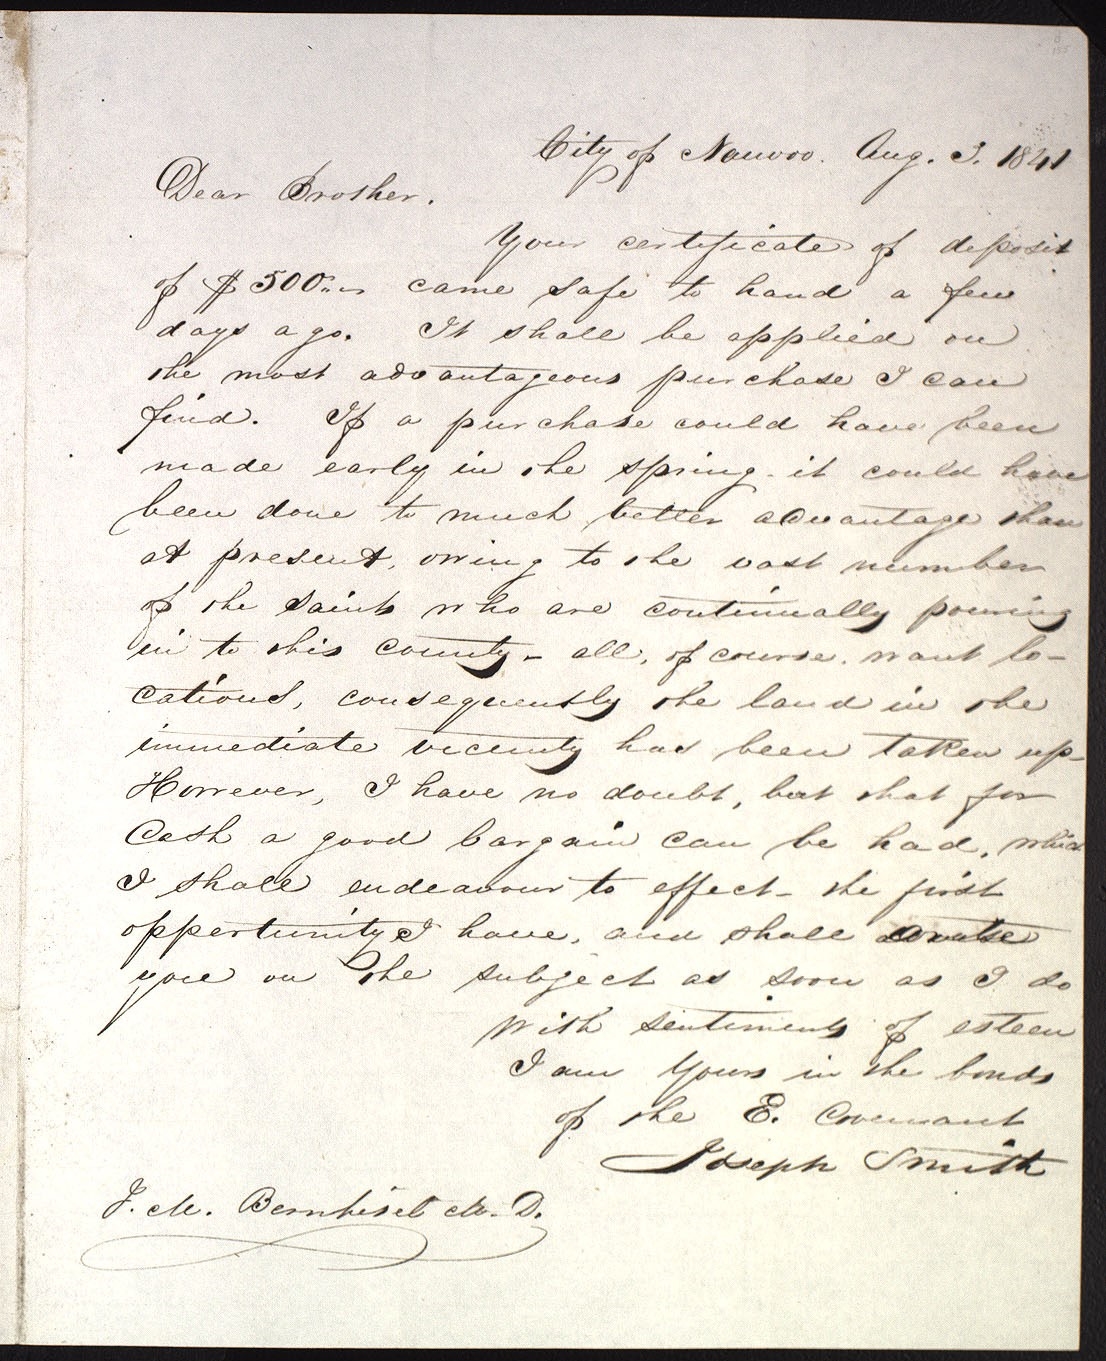 City of Nauvoo. Aug. 3. 1841
Dear Brother.
Your certificate of deposit
of $500.. came safe to hand a few
days ago. It shall be applied on
the most advantageous purchase I can
find. If a purchase could have been
made early in the spring. it could have
been done to much better advantage than
at present, owing to the vast number
of the saints who are continually pouring
in to this county - all, of course. want lo-
cations, consequently the land in the
immediate vicinity has been taken up-
However, I have no doubt, but that for
Cash a good bargain can be had, which
I shall endeavour to effect - the first
opportunity I have, and shall
you on the subject as soon as I do
With sentiments of esteem
I am Yours in the bonds
of the E. Covenant
Joseph Smith
J. M. Bernhisel M. D.